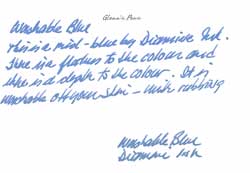 Glennie Penn
Washable Blue
This is a mid-blue by Diamine Ink.
There is a flatness to the colour and
there is a depth to the colour. It is
washable off your skin - with rubbing
Washable Blue
Diamine Ink